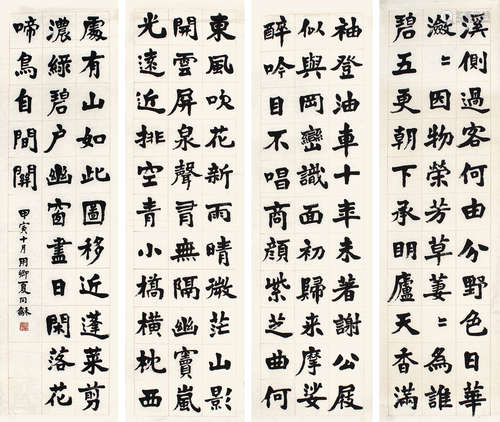 東風吹花新雨晴微茫山影
開雲屏泉聲肻無隔幽竇嵐
光遠近排空青小橋橫枕西
溪側過客何由分野色日華
瀲〻因物榮芳草萋〻為誰
碧五更朝下承明廬天香滿
袖登油車十年未著謝公屐
似與岡巒識面初歸來摩娑
醉吟目不唱商顔紫芝曲何
處有山如此圖移近蓬萊剪
濃綠碧户幽窗盡日閑落花
啼鳥自間關
甲寅十月用卿夏同龢